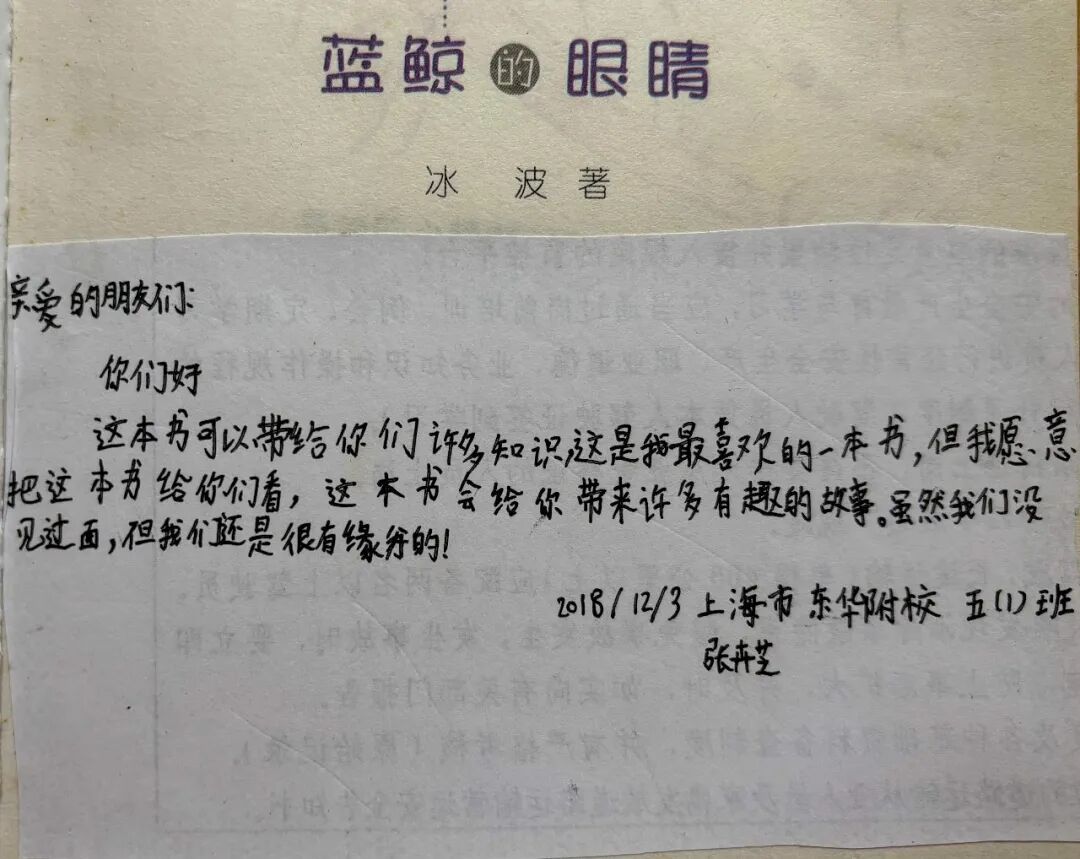 蓝鲸的眼睛
冰 波 著
亲爱的朋友们:
你们好
这本书可以带给你们许多知识,这是我最喜欢的一本书,但我愿意
把这本书给你们看,这本书会给你带来许多有趣的故事。虽然我们没
见过面,但我们还是很有缘分的!
2018/12/3 上海市 东华附校 五(1)班
张卉芝